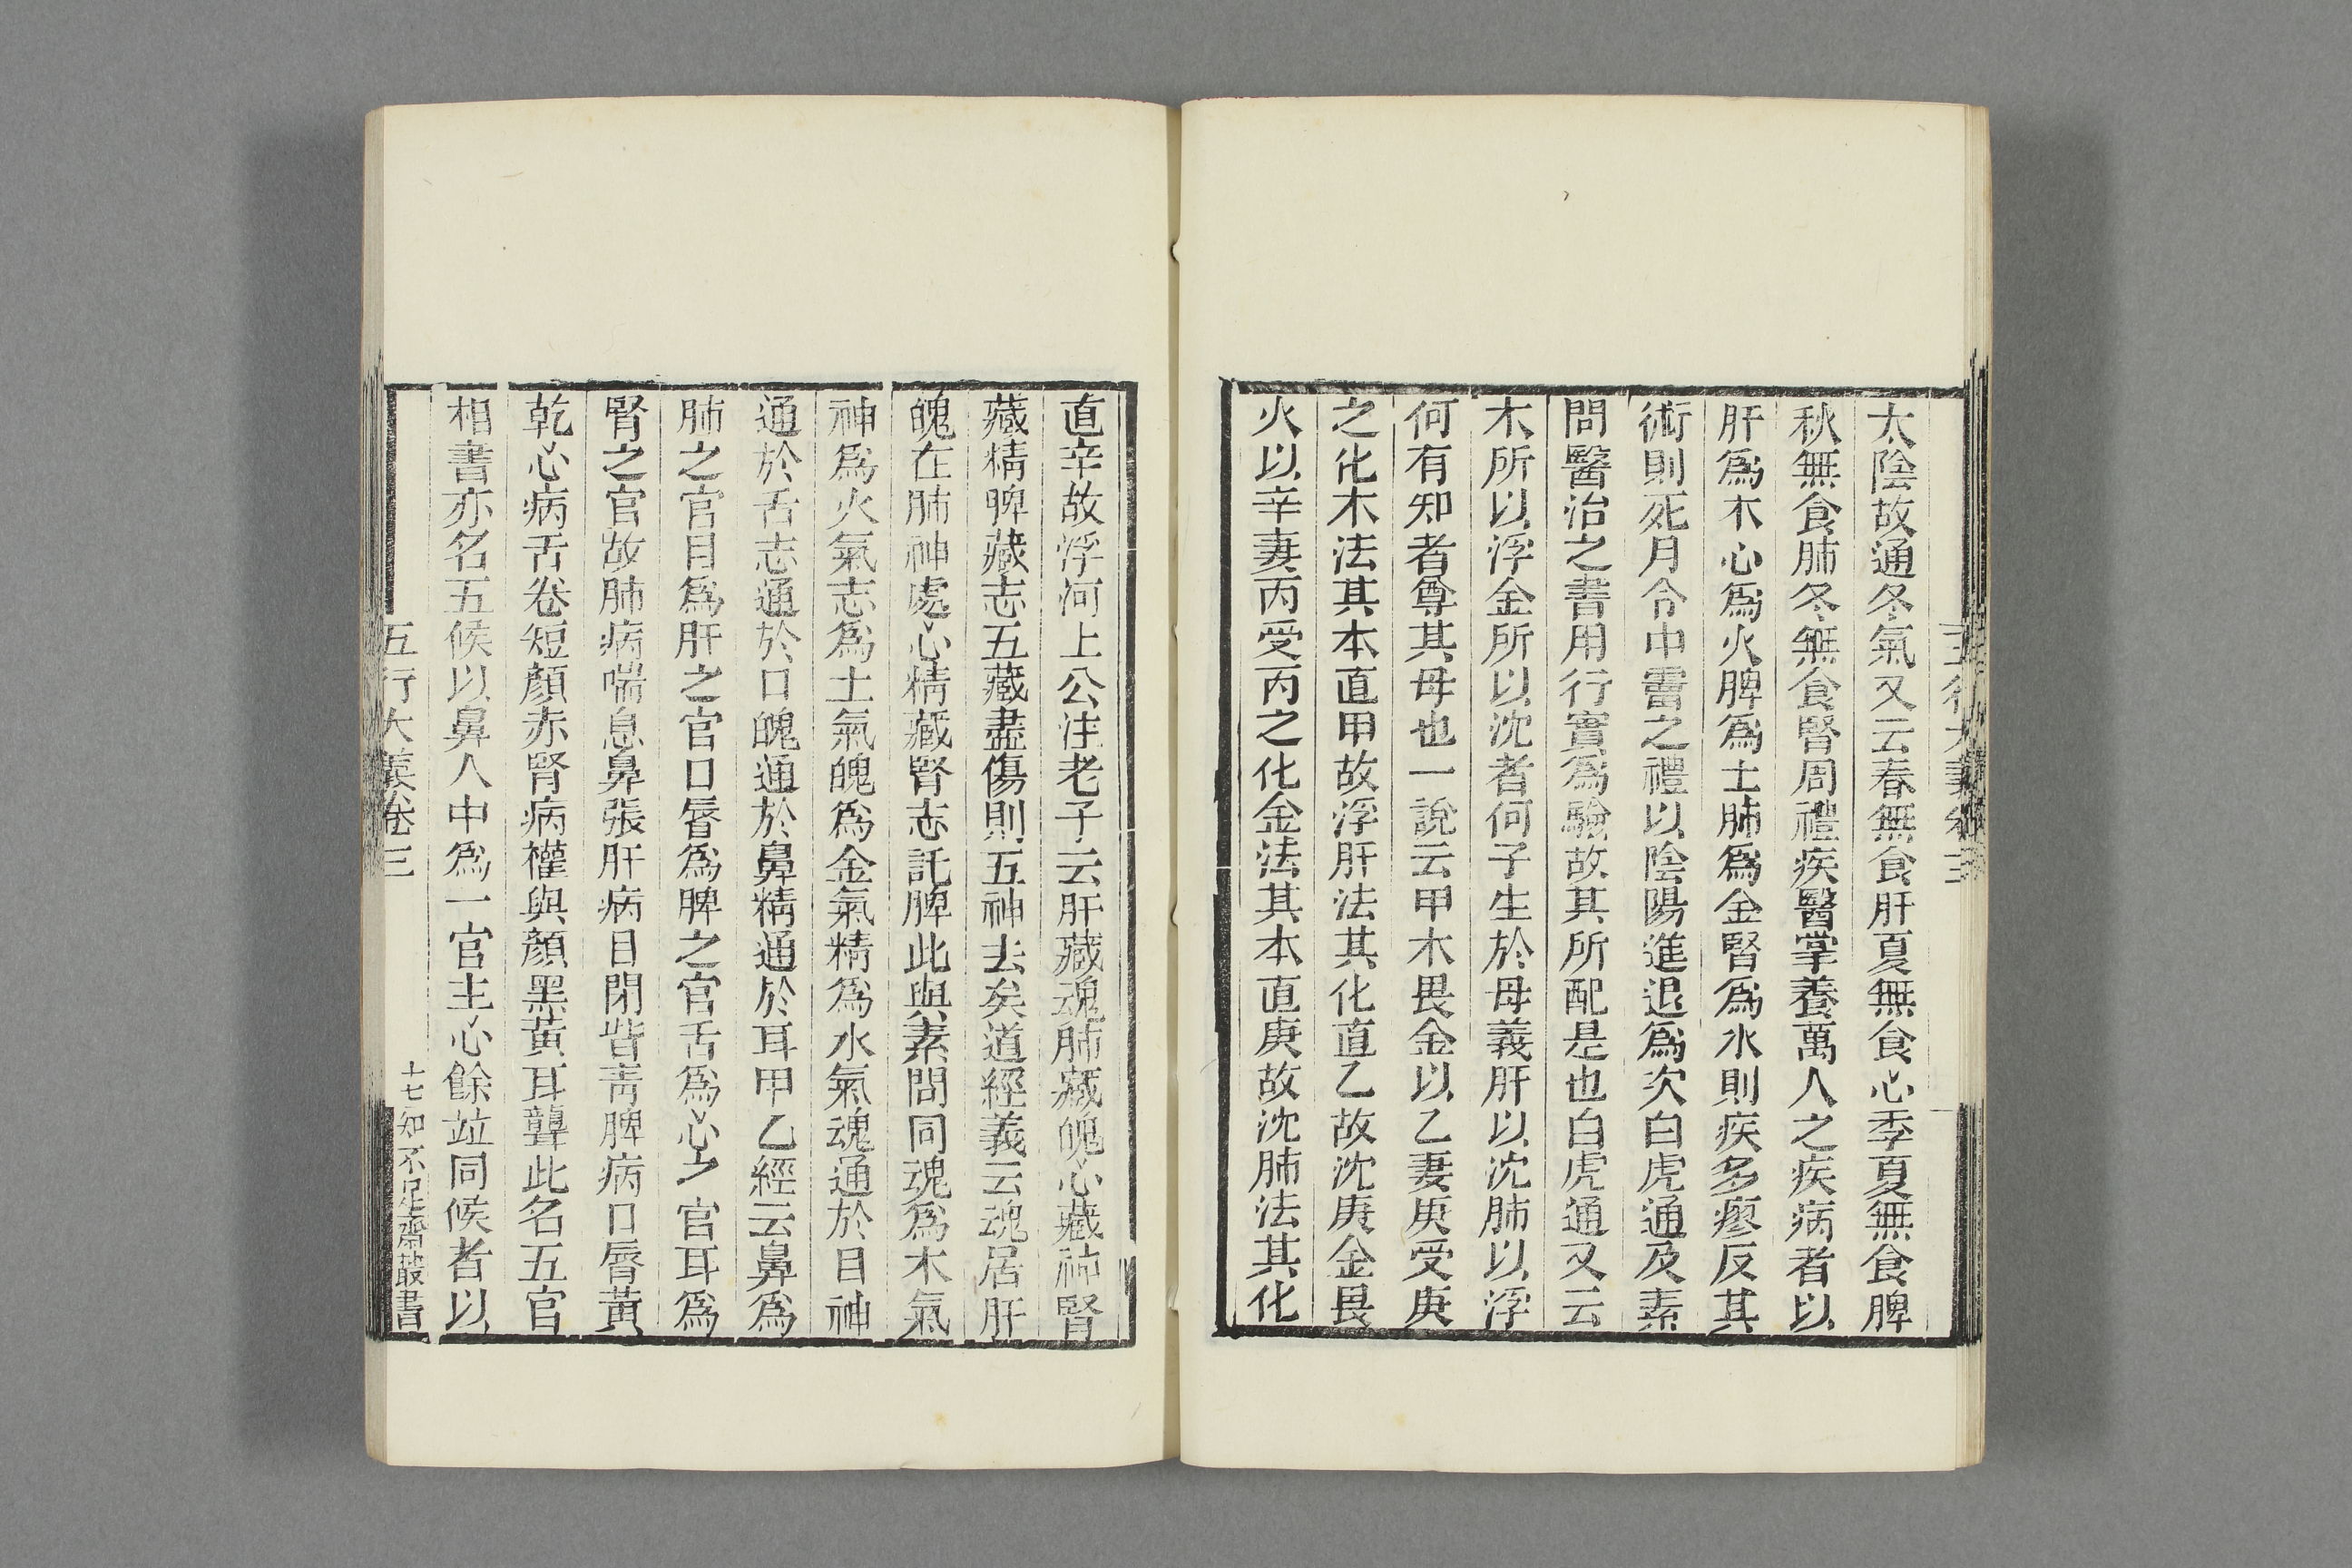 太陰故通冬氣又云春無食肝夏無食心季夏無食脾
秋無食肺冬無食腎周禮疾醫掌養萬人之疾病者以
肝爲木心爲火脾爲土肺爲金腎爲水則疾多瘳反其
術則死月令中霤之禮以陰陽進退爲次白虎通及素
問醫治之書用行實爲驗故其所配是也白虎通又云
木所以浮金所以沈者何子生於母義肝以沈肺以浮
何有知者尊其母也一說云甲木畏金以乙妻庚受庚
之化木法其本直甲故浮肝法其化直乙故沈庚金畏
火以辛妻丙受丙之化金法其本直庚故沈肺法其化
直辛故浮河上公注老子云肝藏魂肺藏魄心藏神腎
藏精脾藏志五藏盡傷則五神去矣道經義云魂居肝
魄在肺神處心精藏腎志託脾此與素問同魂爲木氣
神爲火氣志爲土氣魄爲金氣精爲水氣魂通於目神
通於舌志通於口魄通於鼻精通於耳甲乙經云鼻爲
肺之官目爲肝之官口脣爲脾之官舌爲心之官耳爲
腎之官故肺病喘息鼻張肝病目閉眥青脾病口脣黃
乾心病舌卷短顏赤腎病權與顏黑黃耳聾此名五官
相書亦名五候以鼻人中爲一官主心餘竝同候者以
五行大義卷三
十七
知不足齋叢書